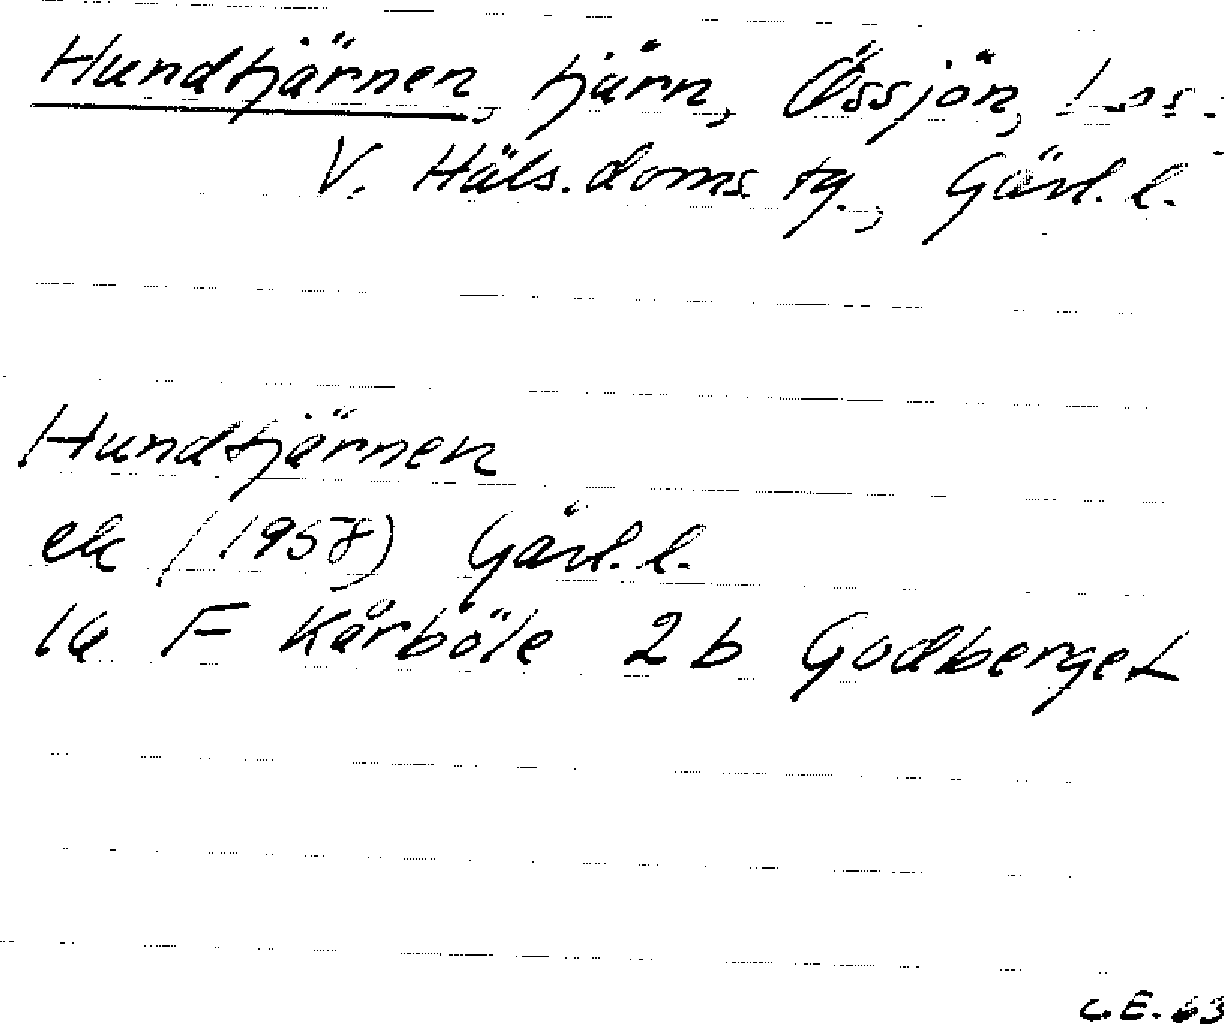 Hundtjärnen, tjärn, Össjön, Los.
V. Häls. doms. tg., Gävl. l.
Hundtjärnen
ek (1958) Gävl. l.
16 F Kårböle 2 b Godberget
C.E. 63